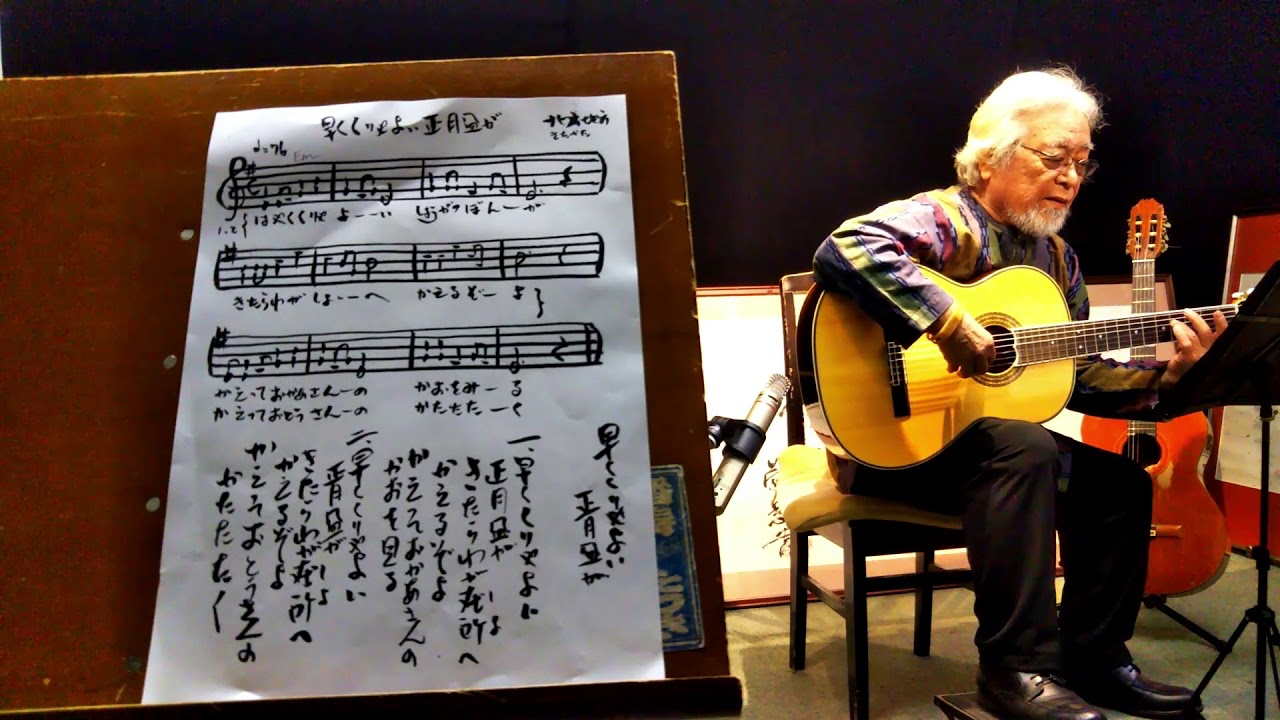 早くくりゃよい正月盆が
♩=76 Em
はやくくりゃ よーーい しょうがつぼんーが
きたらわが しょーーへ かえるぞー よ
かえっておかあさんーの かおをみー る
かえっておとうさんーの かたたたーく
早くくりゃよい
正月盆が
一、早くくりゃよい
正月盆が
きたらわが在所へ
かえるぞよ
かえっておかあさんの
かおを見る
二、早くくりゃよい
正月盆が
きたらわが在所へ
かえるぞよ
かえっておとうさんの
かたたたく